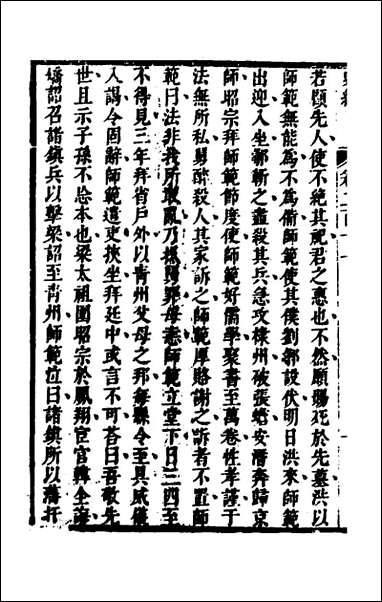 若顧先人使不絕其祀君之惠也不然願賜死於先墓洪以
師範無能爲不爲備師範使其僕劉鄩設伏明日洪來師範
出迎入坐鄩斬之盡殺其兵急攻棣州破張蟾安潛奔歸京
師昭宗拜師範節度使師範好儒學聚書至萬卷性孝謹于
法無所私舅醉殺人其家訴之師範厚賂謝之訴者不置師
範曰法非我所敢亂乃抵舅罪母恚師範立堂下日三四至
不得見三年拜省戶外以青州父母之邦每縣令至具威儀
入謁令固辭師範遣吏挾坐拜廷中或言不可答曰吾敬先
世且示子孫不忘本也梁太祖圍昭宗於鳳翔宦官韓全誨
矯詔召諸鎮兵以擊梁詔至青州師範泣曰諸鎮所以藩扞